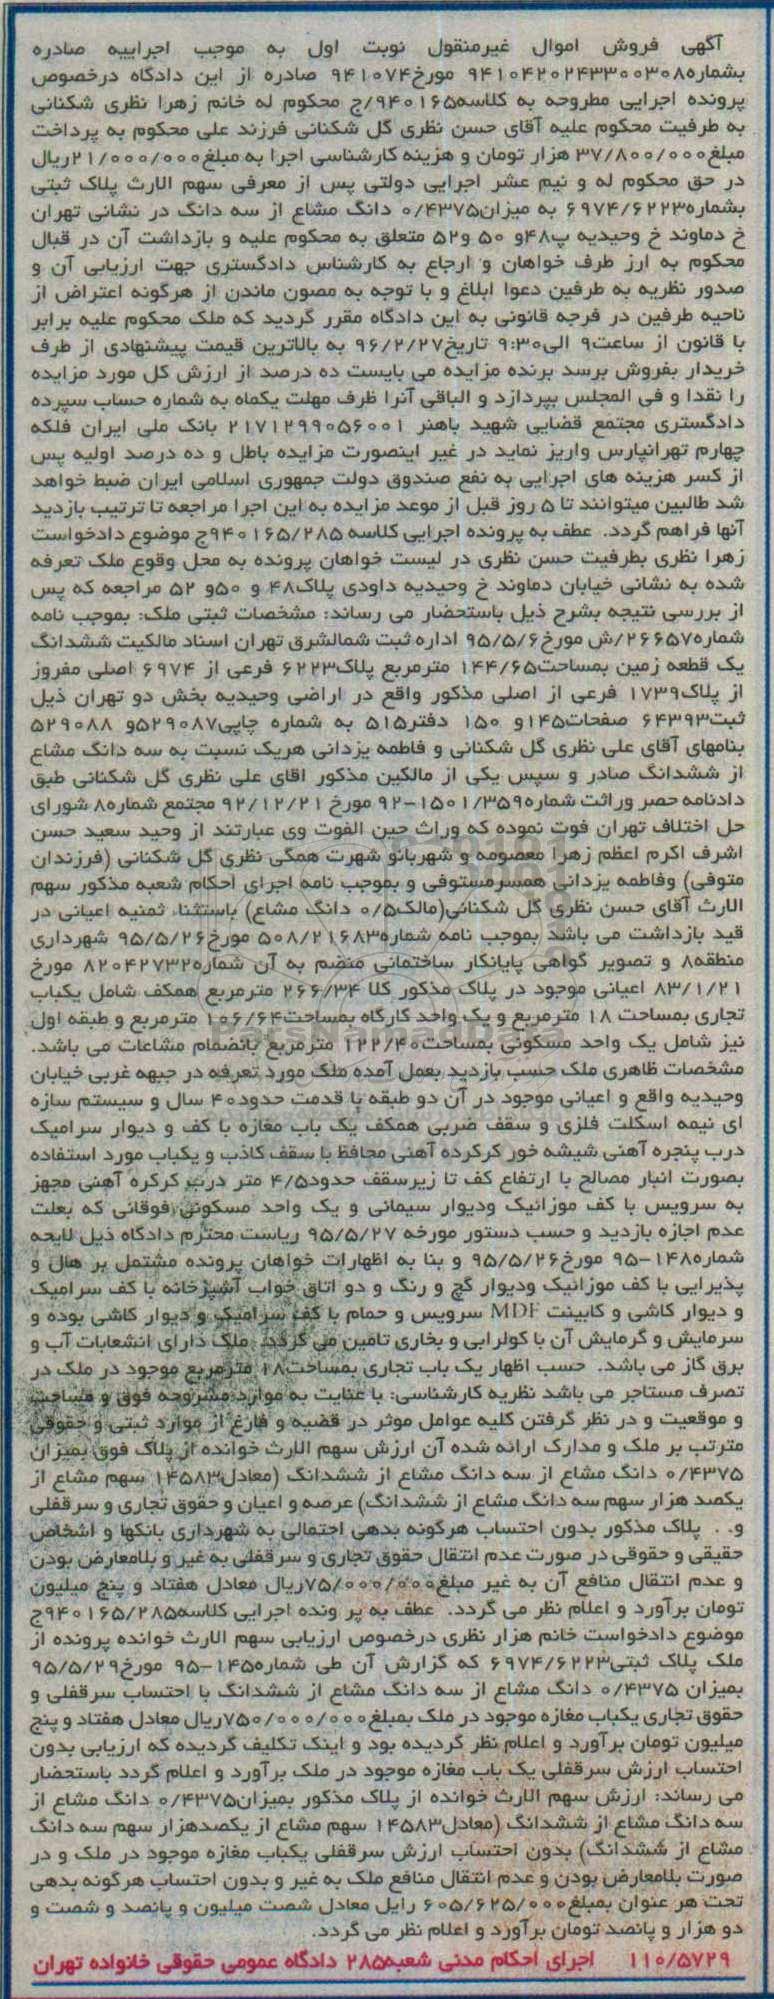 آگهی فروش اموال غیرمنقول نوبت اول به موجب اجراییه صادره
بشماره۹۴۱۰۴۲۰۲۴۳۳۰۰۳۰۸ مورخ۹۴۱۰۷۴ صادره از این دادگاه درخصوص
پرونده اجرایی مطروحه به کلاسه۹۴۰۱۶۵/ج محکوم له خانم زهرا نظری شکنانی
به طرفیت محکوم علیه آقای حسن نظری گل شکنانی فرزند علی محکوم به پرداخت
مبلغ۳۷/۸۰۰/۰۰۰ هزار تومان و هزینه کارشناسی اجرا به مبلغ۲۱/۰۰۰/۰۰۰ریال
در حق محکوم له و نیم عشر اجرایی دولتی پس از معرفی سهم الارث پلاک ثبتی
بشماره۶۹۷۴/۶۲۲۳ به میزان۰/۴۳۷۵ دانگ مشاع از سه دانگ در نشانی تهران
خ دماوند خ وحیدیه پ۴۸و ۵۰ و۵۲ متعلق به محکوم علیه و بازداشت آن در قبال
محکوم به ارز طرف خواهان و ارجاع به کارشناس دادگستری جهت ارزیابی آن و
صدور نظریه به طرفین دعوا ابلاغ و با توجه به مصون ماندن از هرگونه اعتراض از
ناحیه طرفین در فرجه قانونی به این دادگاه مقرر گردید که ملک محکوم علیه برابر
با قانون از ساعت۹ الی۹:۳۰ تاریخ۹۶/۲/۲۷ به بالاترین قیمت پیشنهادی از طرف
خریدار بفروش برسد برنده مزایده می بایست ده درصد از ارزش کل مورد مزایده
را نقدا و فی المجلس بپردازد و الباقی آنرا ظرف مهلت یکماه به شماره حساب سپرده
دادگستری مجتمع قضایی شهید باهنر ۲۱۷۱۲۹۹۰۵۶۰۰۱ بانک ملی ایران فلکه
چهارم تهرانپارس واریز نماید در غیر اینصورت مزایده باطل و ده درصد اولیه پس
از کسر هزینه های اجرایی به نفع صندوق دولت جمهوری اسلامی ایران ضبط خواهد
شد طالبین میتوانند تا ۵ روز قبل از موعد مزایده به این اجرا مراجعه تا ترتیب بازدید
آنها فراهم گردد. عطف به پرونده اجرایی کلاسه ۹۴۰۱۶۵/۲۸۵ج موضوع دادخواست
زهرا نظری بطرفیت حسن نظری در لیست خواهان پرونده به محل وقوع ملک تعرفه
شده به نشانی خیابان دماوند خ وحیدیه داودی پلاک۴۸ و ۵۰و ۵۲ مراجعه که پس
از بررسی نتیجه بشرح ذیل باستحضار می رساند: مشخصات ثبتی ملک: بموجب نامه
شماره۲۶۶۵۷/ش مورخ۹۵/۵/۶ اداره ثبت شمالشرق تهران اسناد مالکیت ششدانگ
یک قطعه زمین بمساحت۱۴۴/۶۵ مترمربع پلاک۶۲۲۳ فرعی از ۶۹۷۴ اصلی مفروز
از پلاک۱۷۳۹ فرعی از اصلی مذکور واقع در اراضی وحیدیه بخش دو تهران ذیل
ثبت۶۴۳۹۳ صفحات۱۴۵و ۱۵۰ دفتر۵۱۵ به شماره چاپی۵۲۹۰۸۷و ۵۲۹۰۸۸
بنامهای آقای علی نظری گل شکنانی و فاطمه یزدانی هریک نسبت به سه دانگ مشاع
از ششدانگ صادر و سپس یکی از مالکین مذکور اقای علی نظری گل شکنانی طبق
دادنامه حصر وراثت شماره۱۵۰۱/۳۵۹-۹۲ مورخ ۹۲/۱۲/۲۱ مجتمع شماره۸ شورای
حل اختلاف تهران فوت نموده که وراث حین الفوت وی عبارتند از وحید سعید حسن
اشرف اکرم اعظم زهرا معصومه و شهربانو شهرت همگی نظری گل شکنانی (فرزندان
متوفی) وفاطمه یزدانی همسرمستوفی و بموجب نامه اجرای احکام شعبه مذکور سهم
الارث آقای حسن نظری گل شکنانی(مالک۰/۵ دانگ مشاع) باستثناء ثمنیه اعیانی در
قید بازداشت می باشد بموجب نامه شماره۵۰۸/۲۱۶۸۳ مورخ۹۵/۵/۲۶ شهرداری
منطقه۸ و تصویر گواهی پایانکار ساختمانی منضم به آن شماره۸۲۰۴۲۷۳۲ مورخ
۸۳/۱/۲۱ اعیانی موجود در پلاک مذکور کلا ۲۶۶/۳۴ مترمربع همکف شامل یکباب
تجاری بمساحت ۱۸ مترمربع و یک واحد کارگاه بمساحت۱۰۶/۶۴ مترمربع و طبقه اول
نیز شامل یک واحد مسکونی بمساحت۱۲۲/۴۰ مترمربع بانضمام مشاعات می باشد.
مشخصات ظاهری ملک حسب بازدید بعمل آمده ملک مورد تعرفه در جبهه غربی خیابان
وحیدیه واقع و اعیانی موجود در آن دو طبقه با قدمت حدود۴۰ سال و سیستم سازه
ای نیمه اسکلت فلزی و سقف ضربی همکف یک باب مغازه با کف و دیوار سرامیک
درب پنجره آهنی شیشه خور کرکرده آهنی محافظ با سقف کاذب و یکباب مورد استفاده
بصورت انبار مصالح با ارتفاع کف تا زیرسقف حدود۴/۵ متر درب کرکره آهنی مجهز
به سرویس با کف موزائیک ودیوار سیمانی و یک واحد مسکونی فوقانی که بعلت
عدم اجازه بازدید و حسب دستور مورخه ۹۵/۵/۲۷ ریاست محترم دادگاه ذیل لایحه
شماره۱۴۸-۹۵ مورخ۹۵/۵/۲۶ و بنا به اظهارات خواهان پرونده مشتمل بر هال و
پذیرایی با کف موزائیک ودیوار گچ و رنگ و دو اتاق خواب آشپزخانه با کف سرامیک
و دیوار کاشی و کابینت MDF سرویس و حمام با کف سرامیک و دیوار کاشی بوده و
سرمایش و گرمایش آن با کولرابی و بخاری تامین می گردد. ملک دارای انشعابات آب و
برق گاز می باشد. حسب اظهار یک باب تجاری بمساحت۱۸ مترمربع موجود در ملک در
تصرف مستاجر می باشد نظریه کارشناسی: با عنایت به موارد مشروحه فوق و مساحت
و موقعیت و در نظر گرفتن کلیه عوامل موثر در قضیه و فارغ از موارد ثبتی و حقوقی
مترتب بر ملک و مدارک ارائه شده آن ارزش سهم الارث خوانده از پلاک فوق بمیزان
۰/۴۳۷۵ دانگ مشاع از سه دانگ مشاع از ششدانگ (معادل۱۴۵۸۳ سهم مشاع از
یکصد هزار سهم سه دانگ مشاع از ششدانگ) عرصه و اعیان و حقوق تجاری و سرقفلی
و. . پلاک مذکور بدون احتساب هرگونه بدهی احتمالی به شهرداری بانکها و اشخاص
حقیقی و حقوقی در صورت عدم انتقال حقوق تجاری و سرقفلی به غیر و بلامعارض بودن
و عدم انتقال منافع آن به غیر مبلغ۷۵/۰۰۰/۰۰۰ریال معادل هفتاد و پنج میلیون
تومان برآورد و اعلام نظر می گردد. عطف به پر ونده اجرایی کلاسه۹۴۰۱۶۵/۲۸۵ج
موضوع دادخواست خانم هزار نظری درخصوص ارزیابی سهم الارث خوانده پرونده از
ملک پلاک ثبتی۶۹۷۴/۶۲۲۳ که گزارش آن طی شماره۱۴۵-۹۵ مورخ۹۵/۵/۲۹
بمیزان ۰/۴۳۷۵ دانگ مشاع از سه دانگ مشاع از ششدانگ با احتساب سرقفلی و
حقوق تجاری یکباب مغازه موجود در ملک بمبلغ۷۵۰/۰۰۰/۰۰۰ریال معادل هفتاد و پنج
میلیون تومان برآورد و اعلام نظر گردیده بود و اینک تکلیف گردیده که ارزیابی بدون
احتساب ارزش سرقفلی یک باب مغازه موجود در ملک برآورد و اعلام گردد باستحضار
می رساند: ارزش سهم الارث خوانده از پلاک مذکور بمیزان۰/۴۳۷۵ دانگ مشاع از
سه دانگ مشاع از ششدانگ (معادل۱۴۵۸۳ سهم مشاع از یکصدهزار سهم سه دانگ
مشاع از ششدانگ) بدون احتساب ارزش سرقفلی یکباب مغازه موجود در ملک و در
صورت بلامعارض بودن و عدم انتقال منافع ملک به غیر و بدون احتساب هرگونه بدهی
تحت هر عنوان بمبلغ۶۰۵/۶۲۵/۰۰۰ رایل معادل شصت میلیون و پانصد و شصت و
دو هزار و پانصد تومان برآورد و اعلام نظر می گردد.
۱۱۰/۵۷۲۹ اجرای احکام مدنی شعبه۲۸۵ دادگاه عمومی حقوقی خانواده تهران